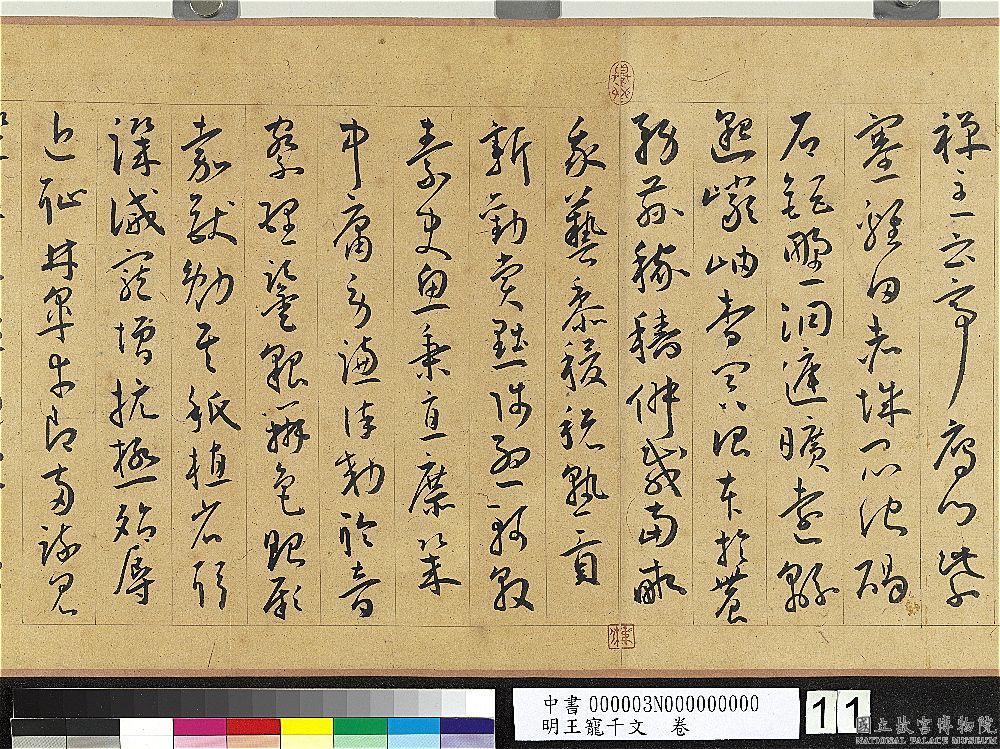 禪主云亭雁門紫
塞雞田赤城昆池碣
石鉅野洞庭曠遠緜
邈巖岫杳冥治本於農
務茲稼穡俶載南畝
我藝黍稷稅熟貢
新勸賞黜陟孟軻敦
素史魚秉直庶幾
中庸勞謙謹敕聆音
察理鑑貌辨色貽厥
嘉猷勉其祗植省躬
譏誡寵增抗極殆辱
近恥林皋幸即兩疏見
中書 000003N000000000
明王寵千文 卷
11
國立故宮博物院
NATIONAL PALACE MUSEUM